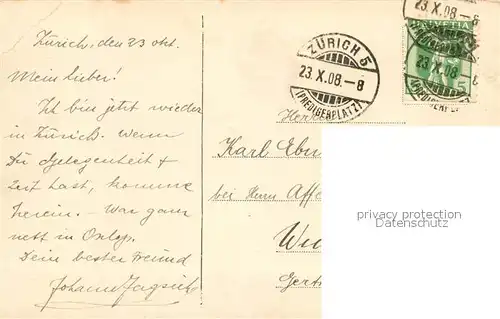 Zürich, den 23 okt.
Mein lieber!
Ich bin jetzt wieder
in Zürich. Wenn
Du Gelegenheit &
Zeit hast, komme
herein. – War ganz
nett in
Dein bester Freund
Johann
HELVETIA
23.X.08.–8
ZÜRICH 5
23.X.08.–8
(PREDIGERPLATZ)
X.08
Herrn
Karl
bei Herrn
privacy protection
Datenschutz